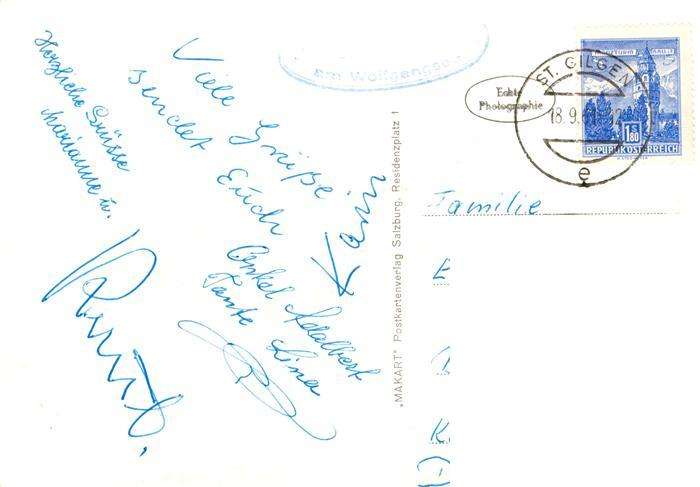 Herzliche Grüsse
Marianne u.
Viele Grüße
sendet Euch
Onkel Adalbert
Tante Lina
am Wolfgangsee
Echte
Photographie
ST. GILGEN
18.9.61-12
e
1.80
S
REPUBLIK ÖSTERREICH
„MAKART" Postkartenverlag Salzburg, Residenzplatz 1
Familie
E
K